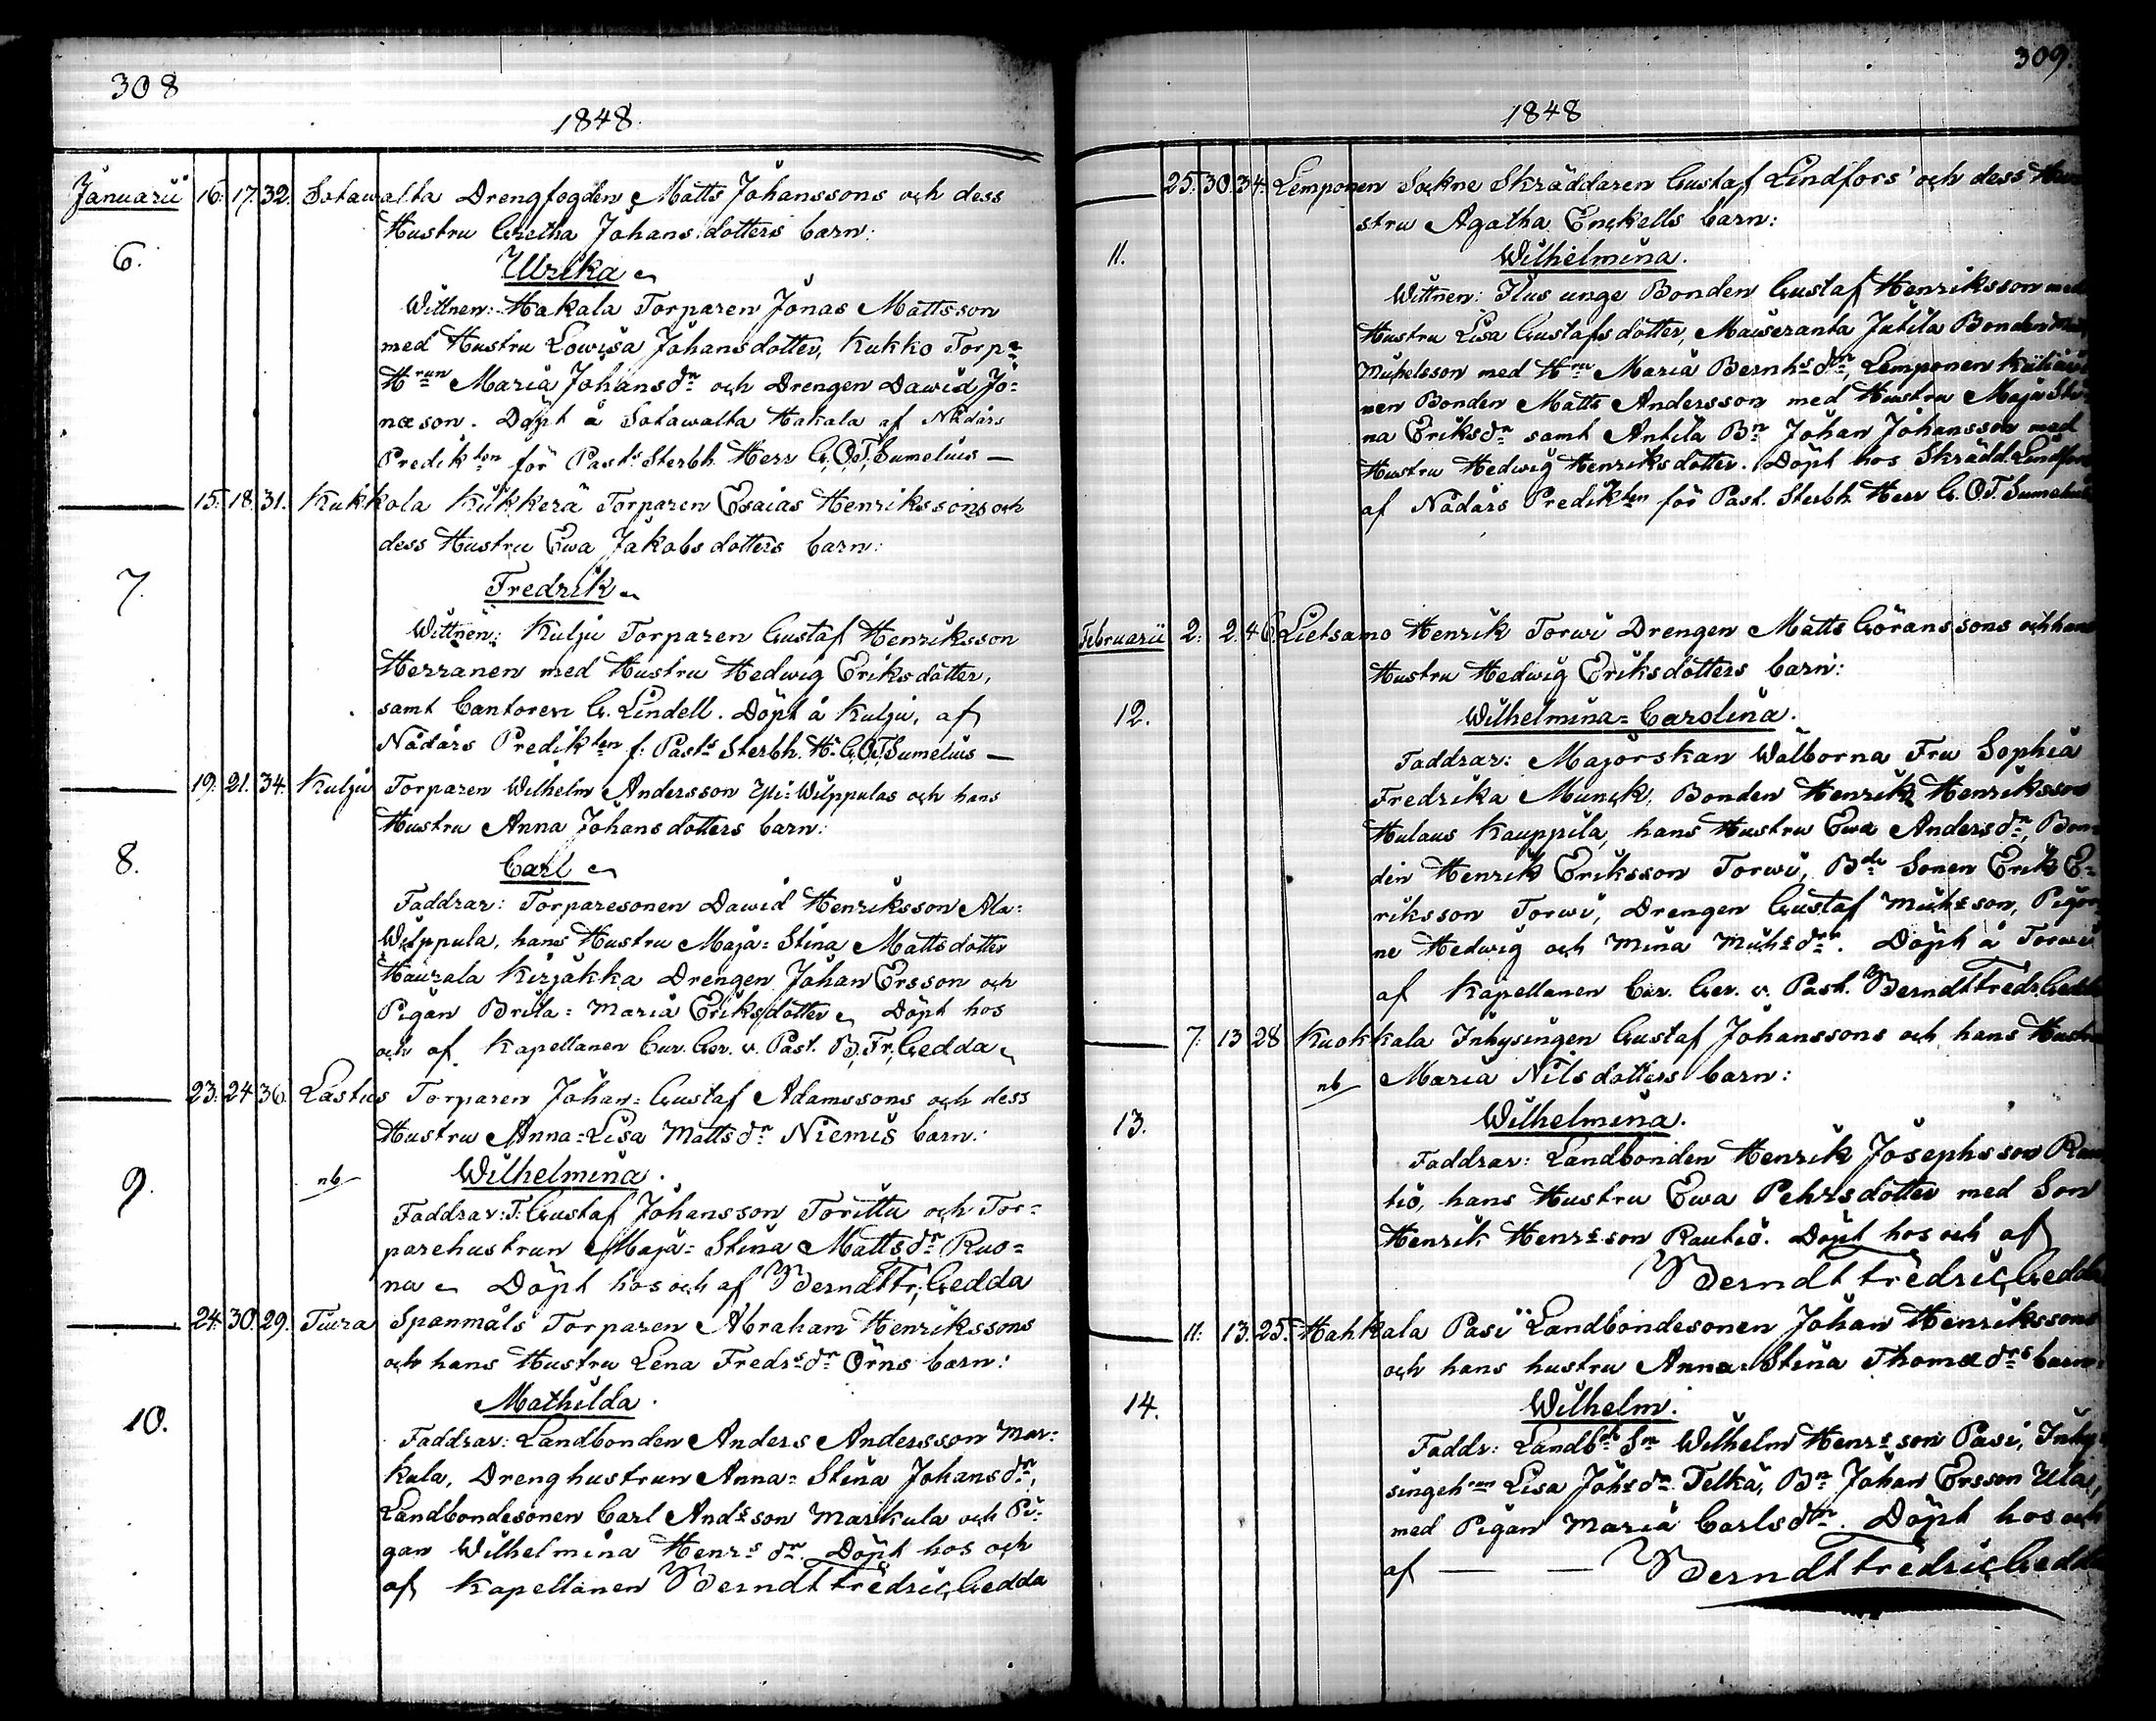 308
1848.
Januarii 16. 17. 32. Sotawalta Drengfogden Matts Johanssons och dess
Hustru Gretha Johansdotters barn:
6.
Ulrika
Wittnen: Hakala Torparen Jonas Mattsson
med Hustru Lowisa Johansdotter, Kukko Torp:
Hrun Maria Johansdr och Drengen Dawid Jo=
næson. Döpt å Sotawalta Hakala af Nådårs
Predikten för Pasts Sterbh. Herr G.O.T. Sumelius —
15. 18. 31. Kukkola Kükkerä Torparen Esaias Henrikssons och
dess Hustru Ewa Jakobsdotters barn:
7.
Fredrik
Wittnen: Kulju Torparen Gustaf Henriksson
Herranen med Hustru Hedwig Eriksdotter,
samt Cantoren G. Lindell. Döpt å Kulju, af
Nådårs Predikten f: Pasts Sterbh. Hr G.O.T. Sumelius —
19. 21. 34. Kulju Torparen Wilhelm Andersson Yli-Wilppulas och hans
Hustru Anna Johansdotters barn:
8.
Carl
Faddrar: Torparesonen Dawid Henriksson Ala=
Wilppula, hans Hustru Maja=Stina Mattsdotter
Haurala Kirjakka Drengen Johan Ersson och
Pigan Brita=Maria Eriksdotter Döpt hos
och af Kapellanen Cur. Ger. v. Past. B. Fr. Gedda
23. 24 36. Lastus Torparen Johan=Gustaf Adamssons och dess
Hustru Anna=Lisa Mattsdr Niemis barn:
9.
nb
Wilhelmina.
Faddrar: T: Gustaf Johansson Toritta och Tor=
parehustrun Maja=Stina Mattsdr Ruo=
na Döpt hos och af Berndt Fr. Gedda
24. 30. 29. Tiura Spanmåls Torparen Abraham Henrikssons
och hans Hustru Lena Fredrsdr Örns barn:
10.
Mathilda.
Faddrar: Landbonden Anders Andersson Mar=
kula, Drenghustrun Anna=Stina Johansdr,
Landbondesonen Carl Andsson Markula och Pi=
gan Wilhelmina Henrsdr. Döpt hos och
af Kapellanen Berndt Fredric Gedda
309.
1848
25. 30. 34. Lemponen Sockne Skräddaren Gustaf Lindfors' och dess Hu
stru Agatha Enckells barn:
11.
Wilhelmina.
Wittnen: Hus unge Bonden Gustaf Henriksson med
Hustru Lisa Gustafsdotter, Maiseranta Jutila Bonden
Michelsson med Hru Maria Bernhsdr, Lemponen
nen Bonden Matts Andersson med Hustru Maja Sti=
na Eriksdr samt Antila Bn Johan Johansson med
Hustru Hedwig Henriksdotter. Döpt hos Skrädd. Lindfors
af Nådårs Predikten för Past. Sterbh. Herr G.O.T. Sumelius
Februarii 2. 2. 46. Lietsamo Henrik Torwi Drengen Matts Göranssons och hans
Hustru Hedwig Eriksdotters barn:
12.
Wilhelmina=Carolina.
Faddrar: Majorskan Wälborna Fru Sophia
Fredrika Munck, Bonden Henrik Henriksson
Hulaus Kauppila, hans Hustru Ewa Andersdr, Bon=
den Henrik Eriksson Torwi, Bde Sonen Erik E=
riksson Torwi, Drengen Gustaf Michsson, Pigor=
ne Hedwig och Mina Michsdr. Döpt å Torwi
af Kapellanen Cur. Ger. v. Past. Berndt Fredr. Gedda
7. 13 28 Kuokkala Inhysingen Gustaf Johanssons och hans Hustru
nb Maria Nilsdotters barn:
13.
Wilhelmina.
Faddrar: Landbonden Henrik Josephsson Rau
tio, hans Hustru Ewa Pehrsdotter med Son
Henrik Henrsson Rautio. Döpt hos och af
Berndt Fredric Gedda
11. 13. 25. Hahkala Pasi Landbondesonen Johan Henrikssons
och hans hustru Anna=Stina Thomædrs barn:
14.
Wilhelm.
Faddr: Landbde Sn Wilhelm Henrsson Pasi, Inhy
singehrun Lisa Johsdr Telkä, Bn Johan Ersson Uta,
med Pigan Maria Carlsdr. Döpt hos och
af — — Berndt Fredric Gedda